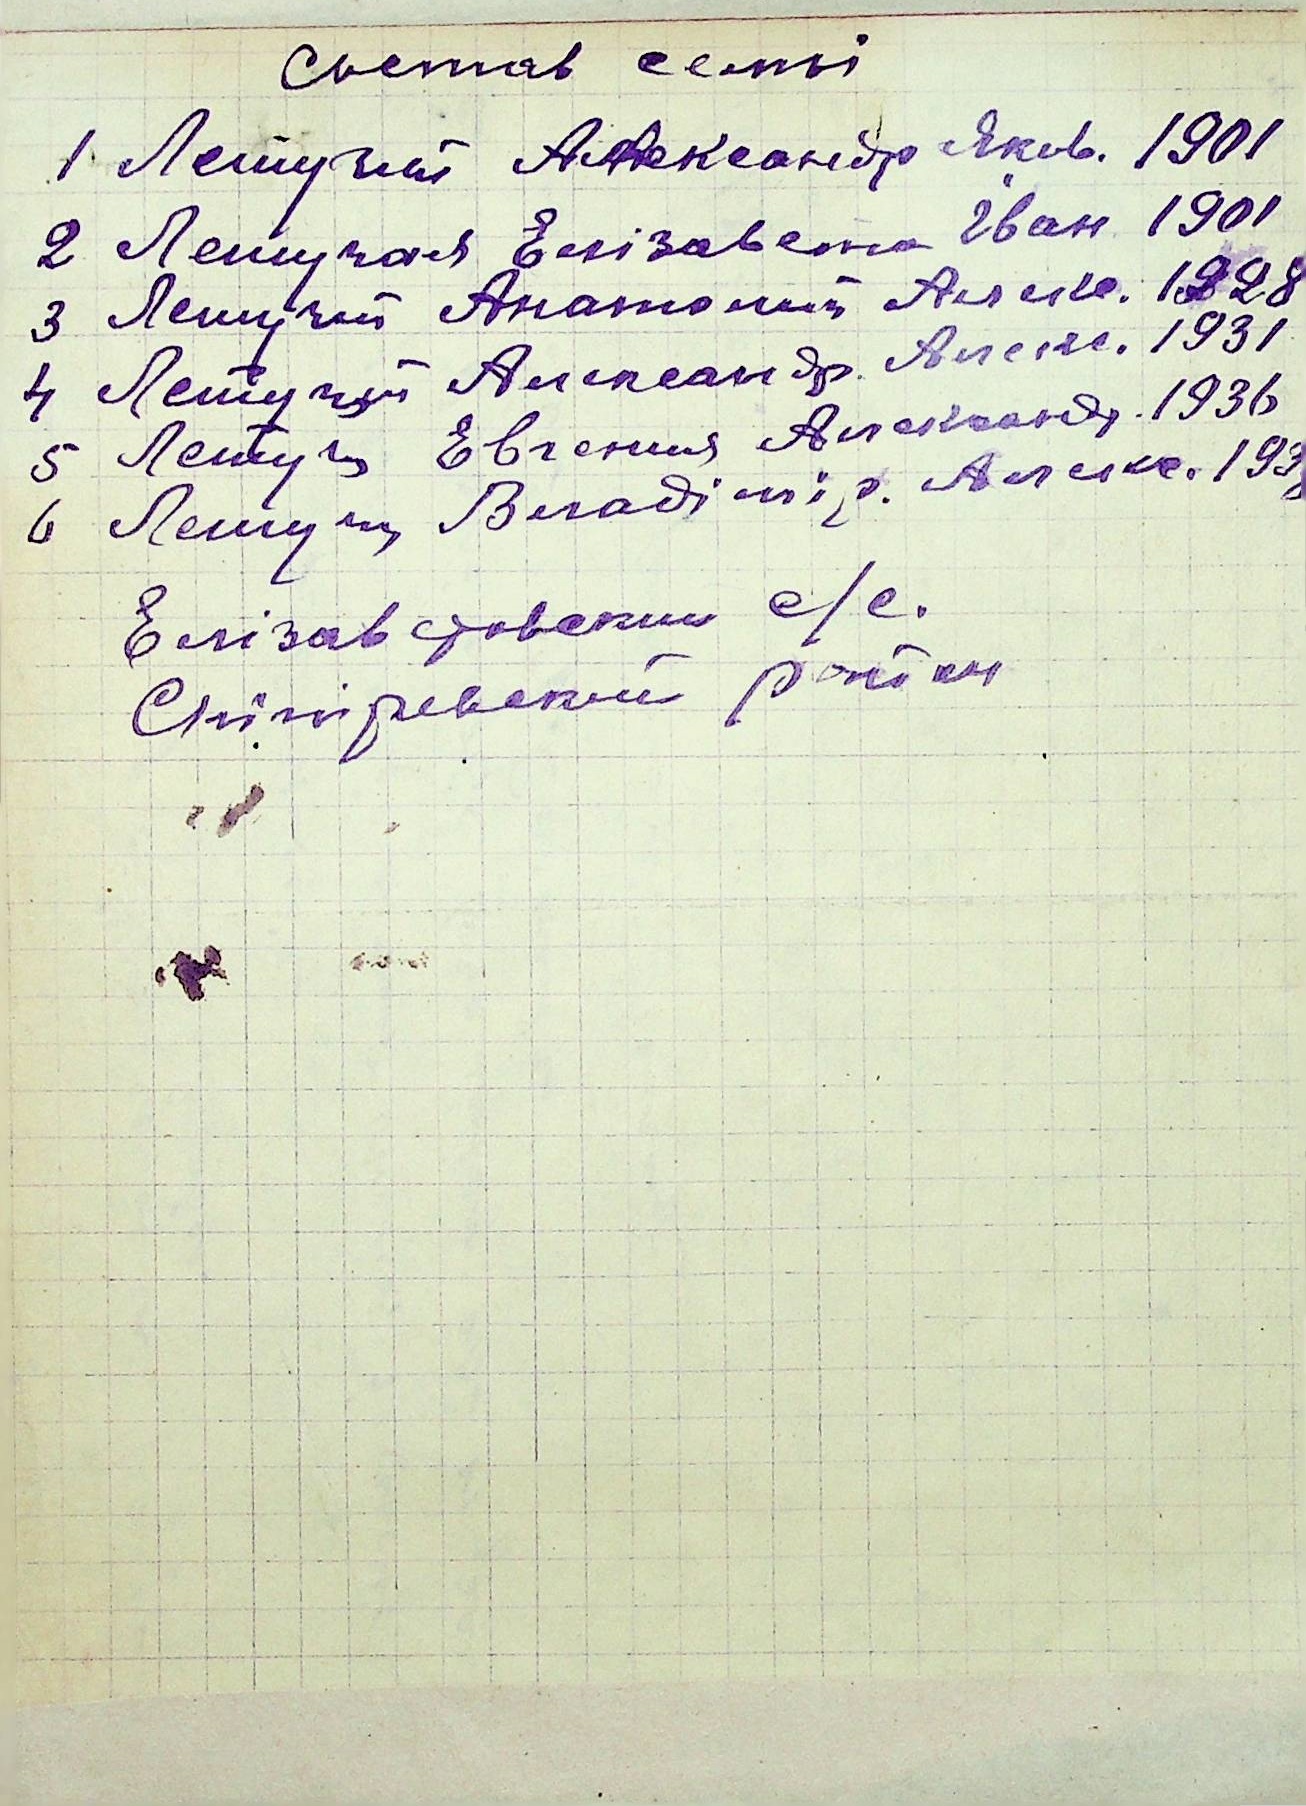 Состав семьі
1 Летучий Александр Яков. 1901
2 Летучая Елізавета Іван 1901
3 Летучий Анатолий Алекс. 1928
4 Летучий Александр. Алекс. 1931
5 Летуч Евгения Александр. 1936
6 Летуч Владімір. Алекс. 193
Елізаветовский с/с.
Снігиревский район